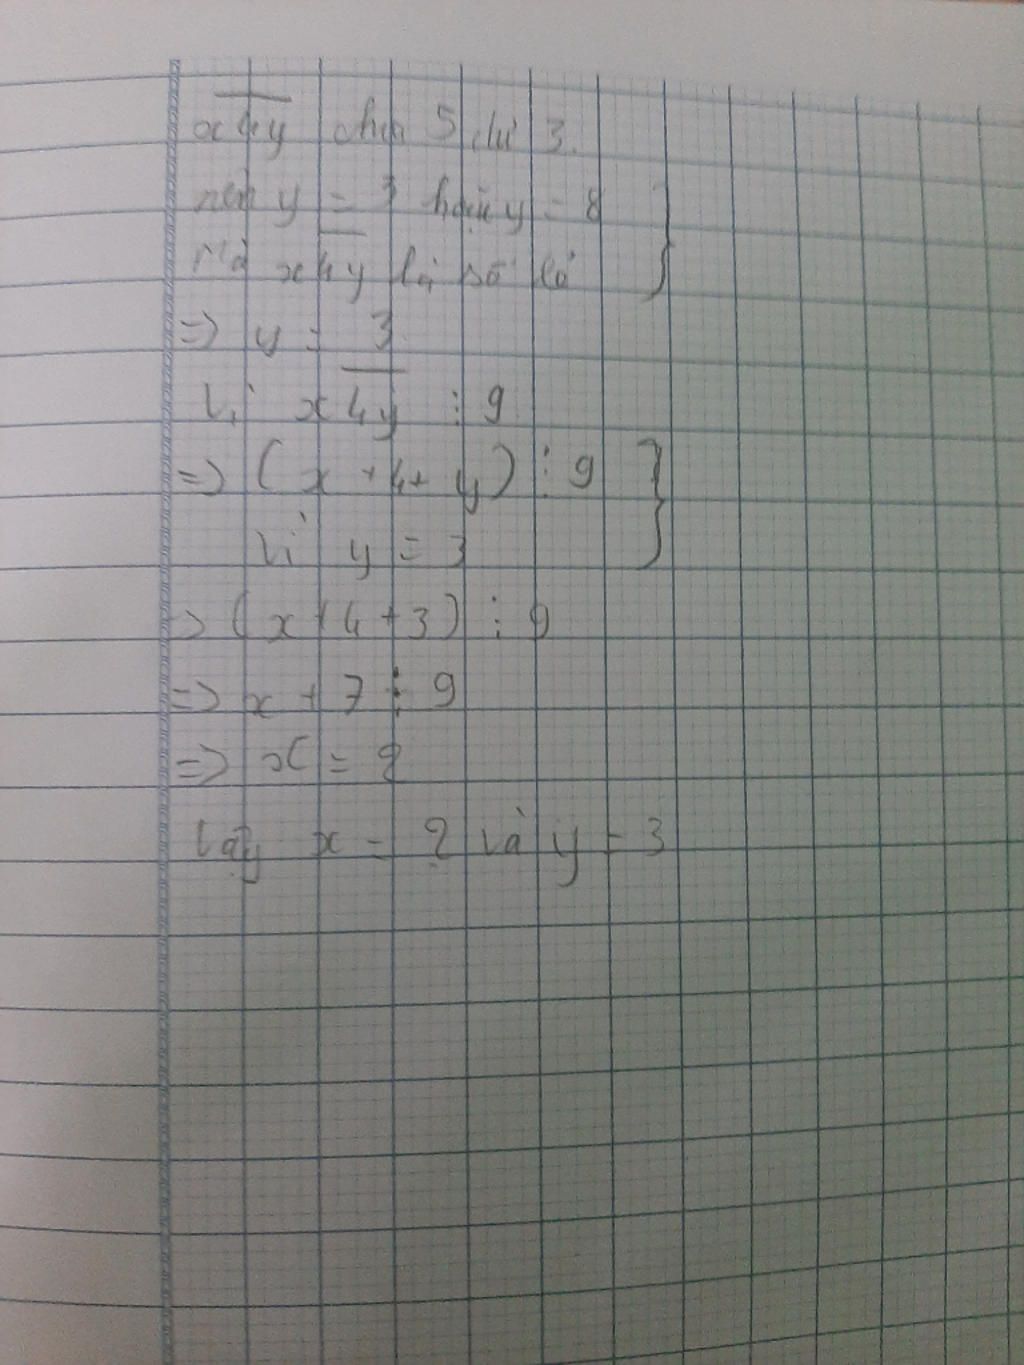 x4y chia 5 dư 3.
nên y = 3 hoặc y = 8 }
Mà x4y là số lẻ
=> y = 3
Vì x4y ⋮ 9
=> (x + 4 + y) ⋮ 9 }
Vì y = 3
=> (x + 4 + 3) ⋮ 9
=> x + 7 ⋮ 9
=> x = 2
Vậy x = 2 và y = 3